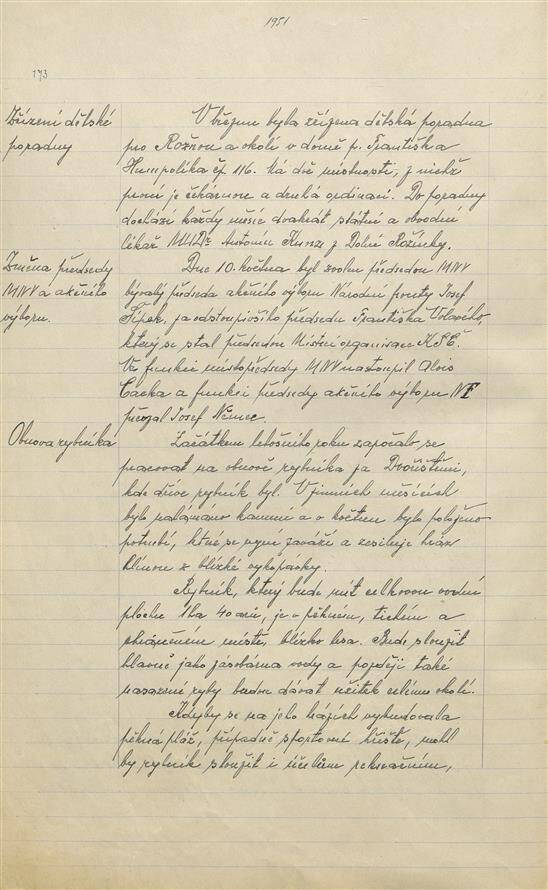 1951
173
Zřízení dětské
poradny
V březnu byla zřízena dětská poradna
pro Rožnou a okolí v domě p. Františka
Humpolíka čp. 116. Má dvě místnosti, z nichž
první je čekárnou a druhá ordinací. Do poradny
dochází každý měsíc dvakrát státní a obvodní
lékař MUDr. Antonín Kunz z Dolní Rožínky.
Změna předsedy
MNV a akčního
výboru.
Dne 10. května byl zvolen předsedou MNV
bývalý předseda akčního výboru Národní fronty Josef
za odstoupivšího předsedu Františka
který se stal předsedou Místní organisace KSČ.
Ve funkci místopředsedy MNV nastoupil Alois
Cacka a funkci předsedy akčního výboru NF
převzal Josef Němec.
Obnova rybníka
Začátkem letošního roku započalo se
pracovat na obnově rybníka za Dvořištěmi,
kde dříve rybník byl. V zimních měsících
bylo nalámáno kamení a v květnu bylo položeno
potrubí, které se nyní zaváží a zesiluje hráz
hlínou z blízké vykopávky.
Rybník, který bude mít celkovou vodní
plochu 1 ha 40 arů, je v pěkném, tichém a
chráněném místě, blízko lesa. Bude sloužit
hlavně jako zásobárna vody a později také
nasazené ryby budou dávat užitek celému okolí.
Kdyby se na jeho hrázích vybudovala
pěkná pláž, případně sportovní hřiště, mohl
by rybník sloužit i účelům rekreačním,